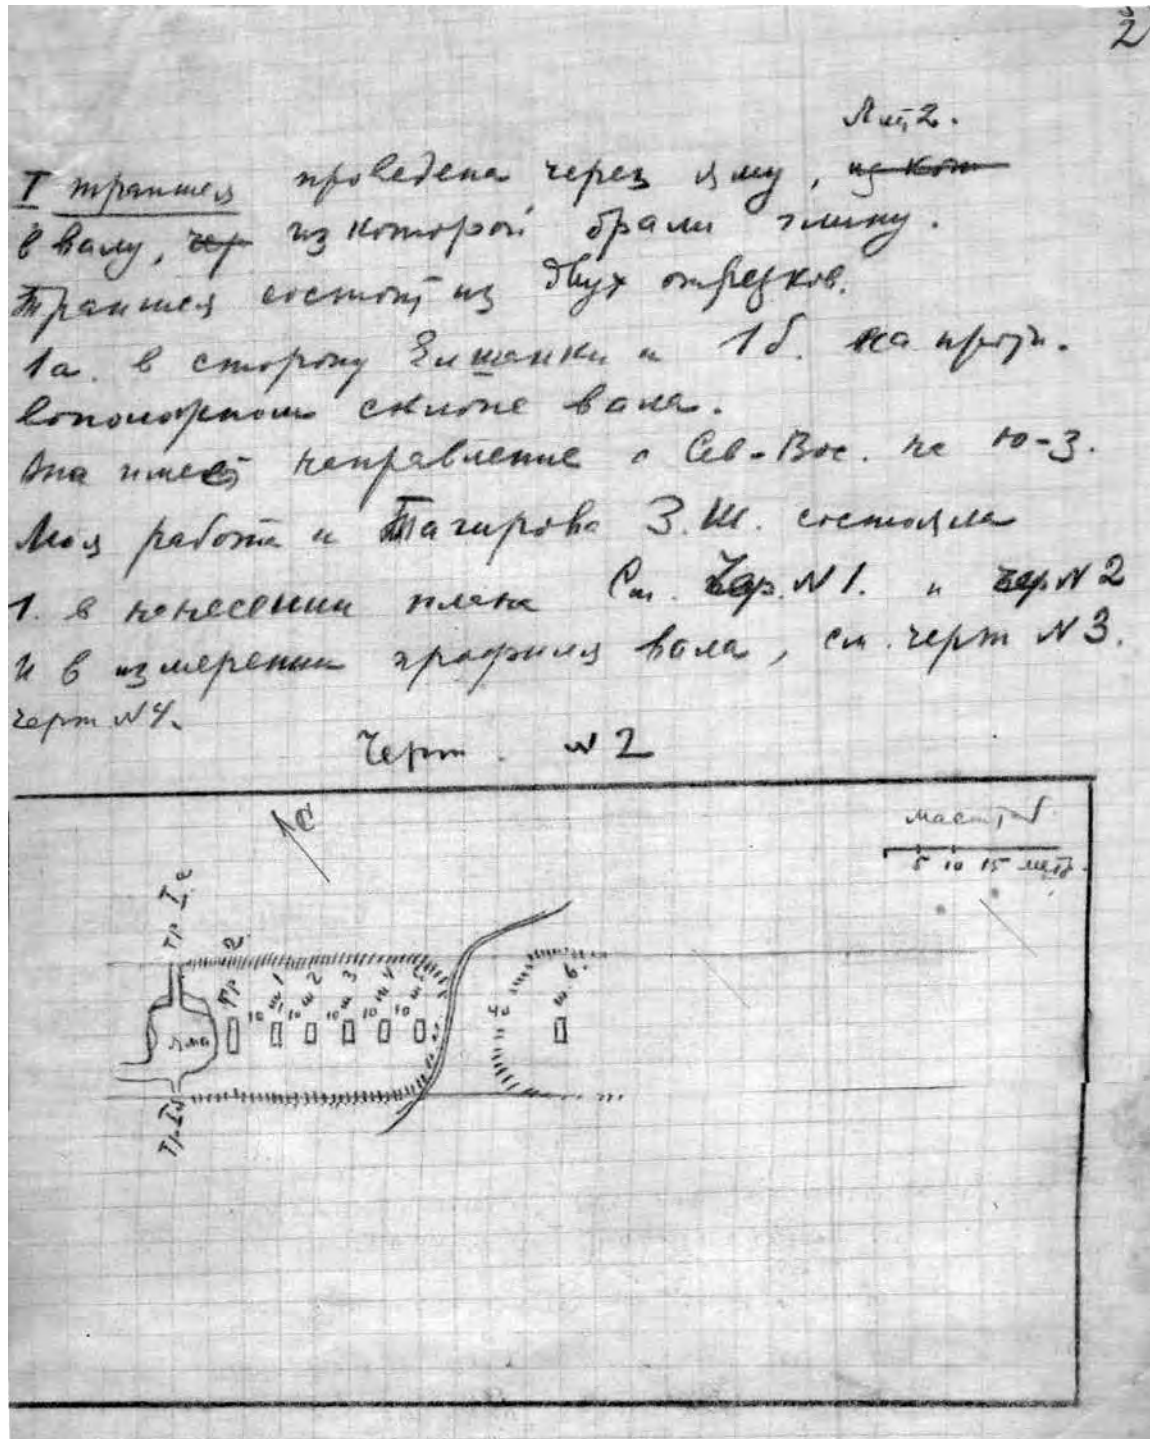 2
Лит 2.
I траншея проведена через яму, из кот
в валу, чер из которой брали глину.
Траншея состоит из двух отрезков.
1а. в сторону Елшанки и 1б. на проти-
воположном склоне вала.
Она имеет направление с Сев-Вос. на Ю-З.
Моя работа и Тагирова З.Ш. состояла
1. в нанесении плана См. Чер. N 1. и чер N 2
и в измерении профиля вала, см. черт N 3.
черт N 4.
Черт. N 2
С
масштаб
5 10 15 метр.
Тр. Iа
Тр 2.
ш 1
ш 2
ш 3
ш 4
ш 5
ш. 6.
10 10 10 10 10
40
Яма
Тр. Iб